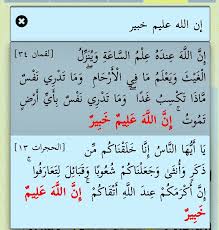 إن الله عليم خبير
إِنَّ اللَّهَ عِندَهُ عِلْمُ السَّاعَةِ وَيُنَزِّلُ [لقمان ٣٤]
الْغَيْثَ وَيَعْلَمُ مَا فِي الْأَرْحَامِ ۖ وَمَا تَدْرِي نَفْسٌ
مَّاذَا تَكْسِبُ غَدًا ۖ وَمَا تَدْرِي نَفْسٌ بِأَيِّ أَرْضٍ
تَمُوتُ ۚ إِنَّ اللَّهَ عَلِيمٌ خَبِيرٌ
يَا أَيُّهَا النَّاسُ إِنَّا خَلَقْنَاكُم مِّن [الحجرات ١٣]
ذَكَرٍ وَأُنثَىٰ وَجَعَلْنَاكُمْ شُعُوبًا وَقَبَائِلَ لِتَعَارَفُوا ۚ
إِنَّ أَكْرَمَكُمْ عِندَ اللَّهِ أَتْقَاكُمْ ۚ إِنَّ اللَّهَ عَلِيمٌ
خَبِيرٌ